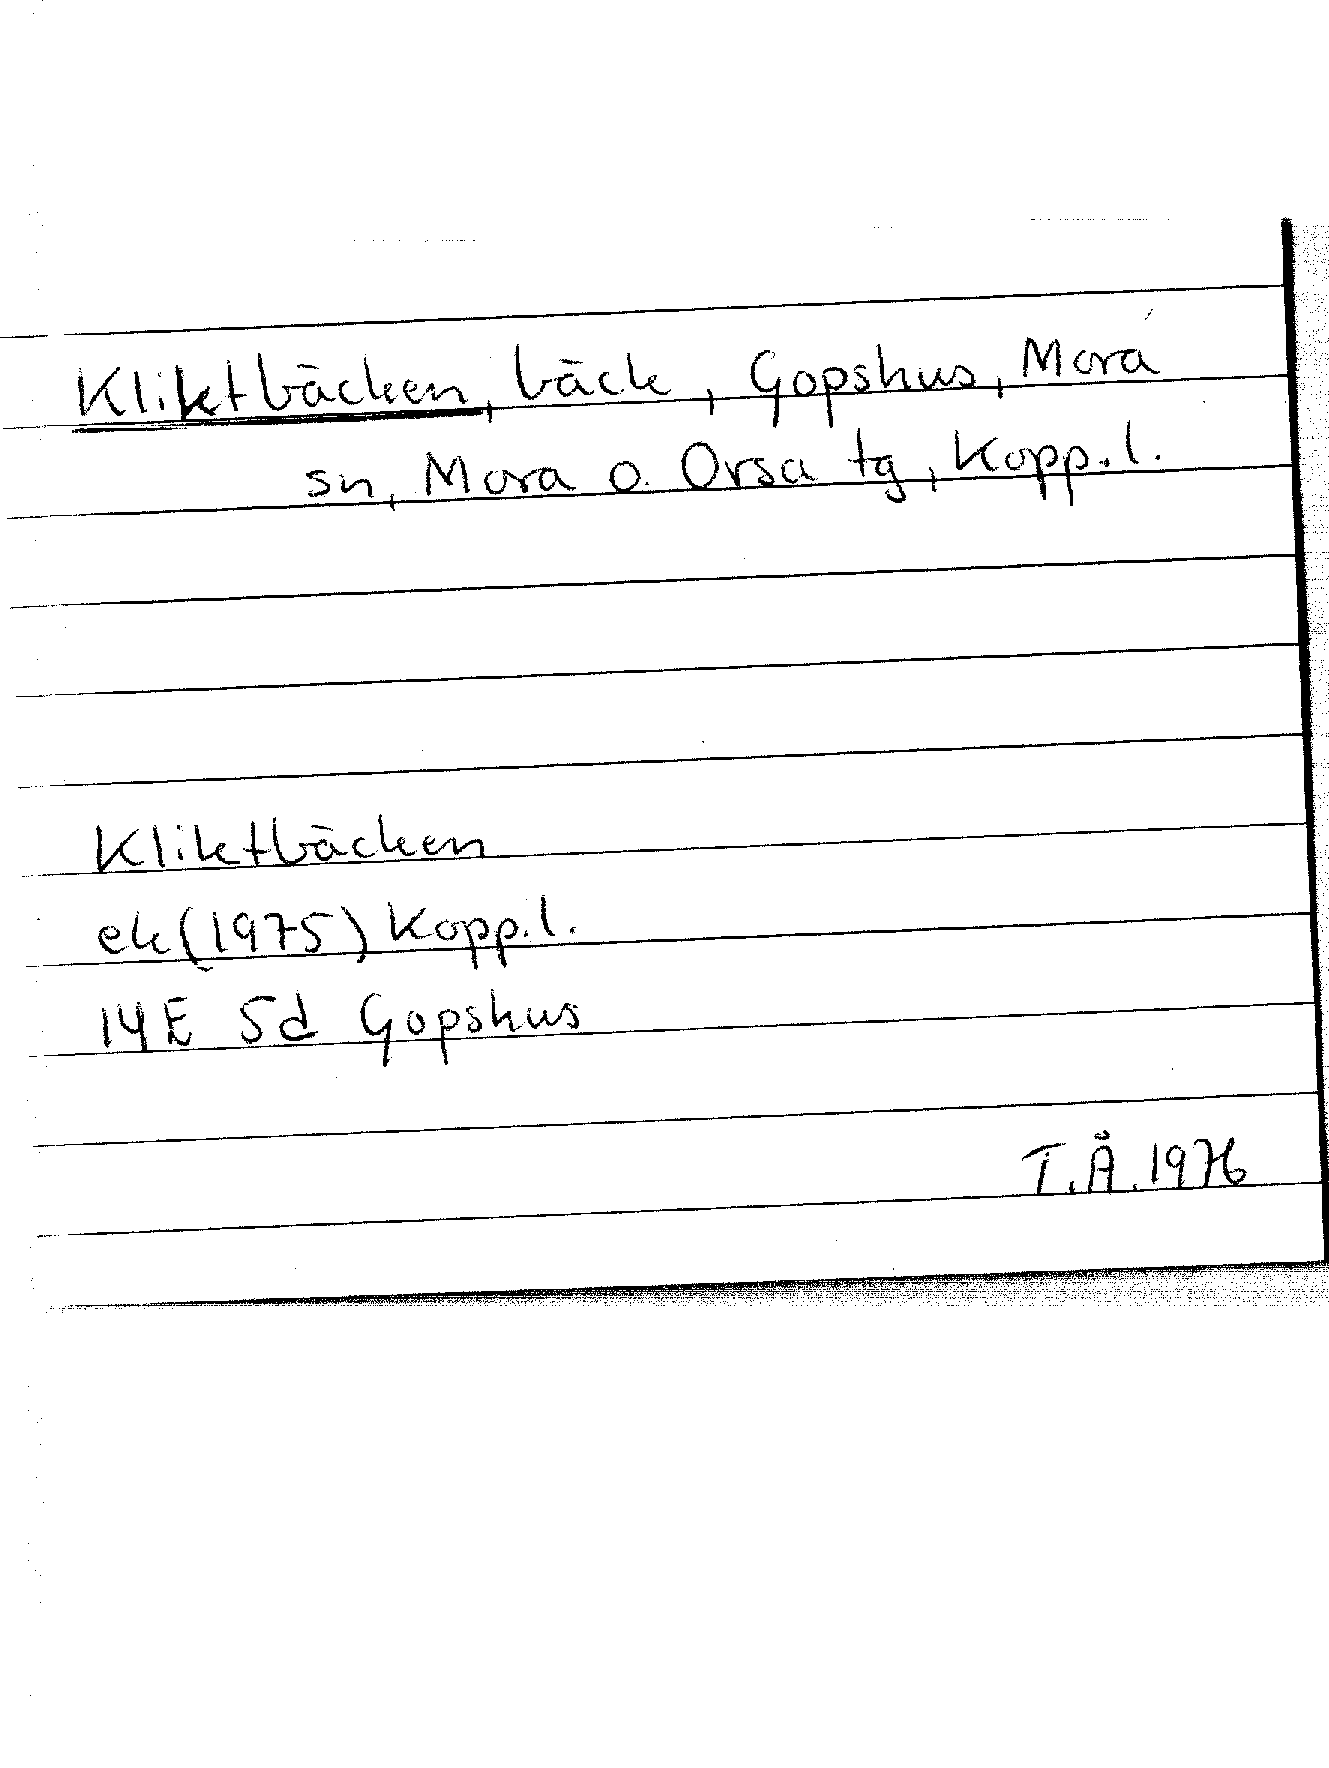 Kliktbäcken, bäck, Gopshus, Mora
sn, Mora o. Orsa tg, Kopp.l.
Kliktbäcken
ek(1975) Kopp.l.
14E 5d Gopshus
T.Å.1976